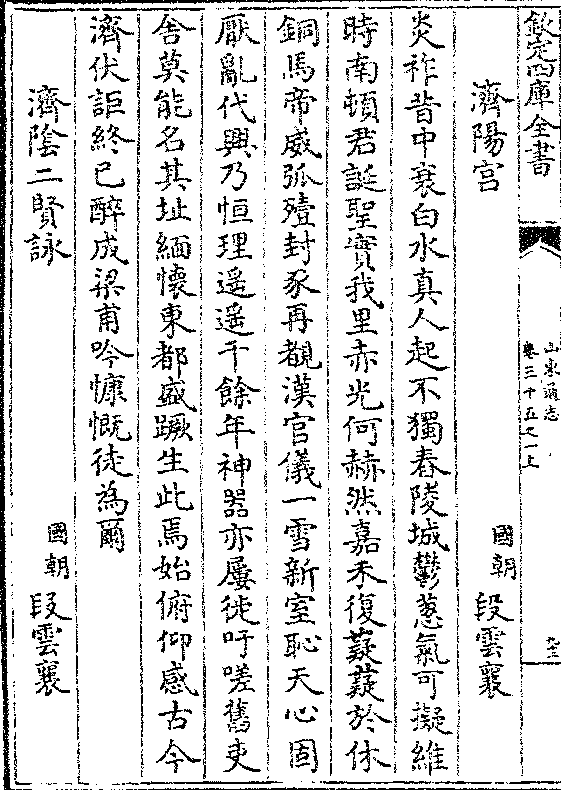 欽定四庫全書
山東通志
卷三十五之一上
九三
濟陽宫
國朝 段雲襄
炎祚昔中衰白水真人起不獨舂陵城鬱蔥氣可擬維
時南頓君誕聖實我里赤光何赫然嘉禾復薿薿於休
銅馬帝威弧殪封豕再覩漢官儀一雪新室恥天心固
厭亂代興乃恒理遥遥千餘年神器亦屢徙吁嗟舊吏
舍莫能名其址緬懷東都盛蹶生此焉始俯仰感古今
濟伏詎終已醉成梁甫吟慷慨徒為爾
濟陰二賢詠
國朝 段雲襄